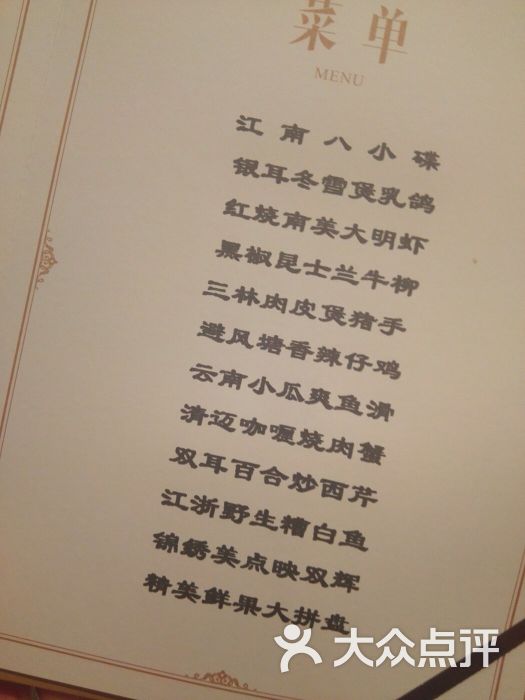 菜单
MENU
江南八小碟
银耳冬雪煲乳鸽
红烧南美大明虾
黑椒昆士兰牛柳
三林肉皮煲猪手
避风塘香辣仔鸡
云南小瓜爽鱼滑
清迈咖喱烧肉蟹
双耳百合炒西芹
江浙野生糟白鱼
锦绣美点映双辉
精美鲜果大拼盘
大众点评